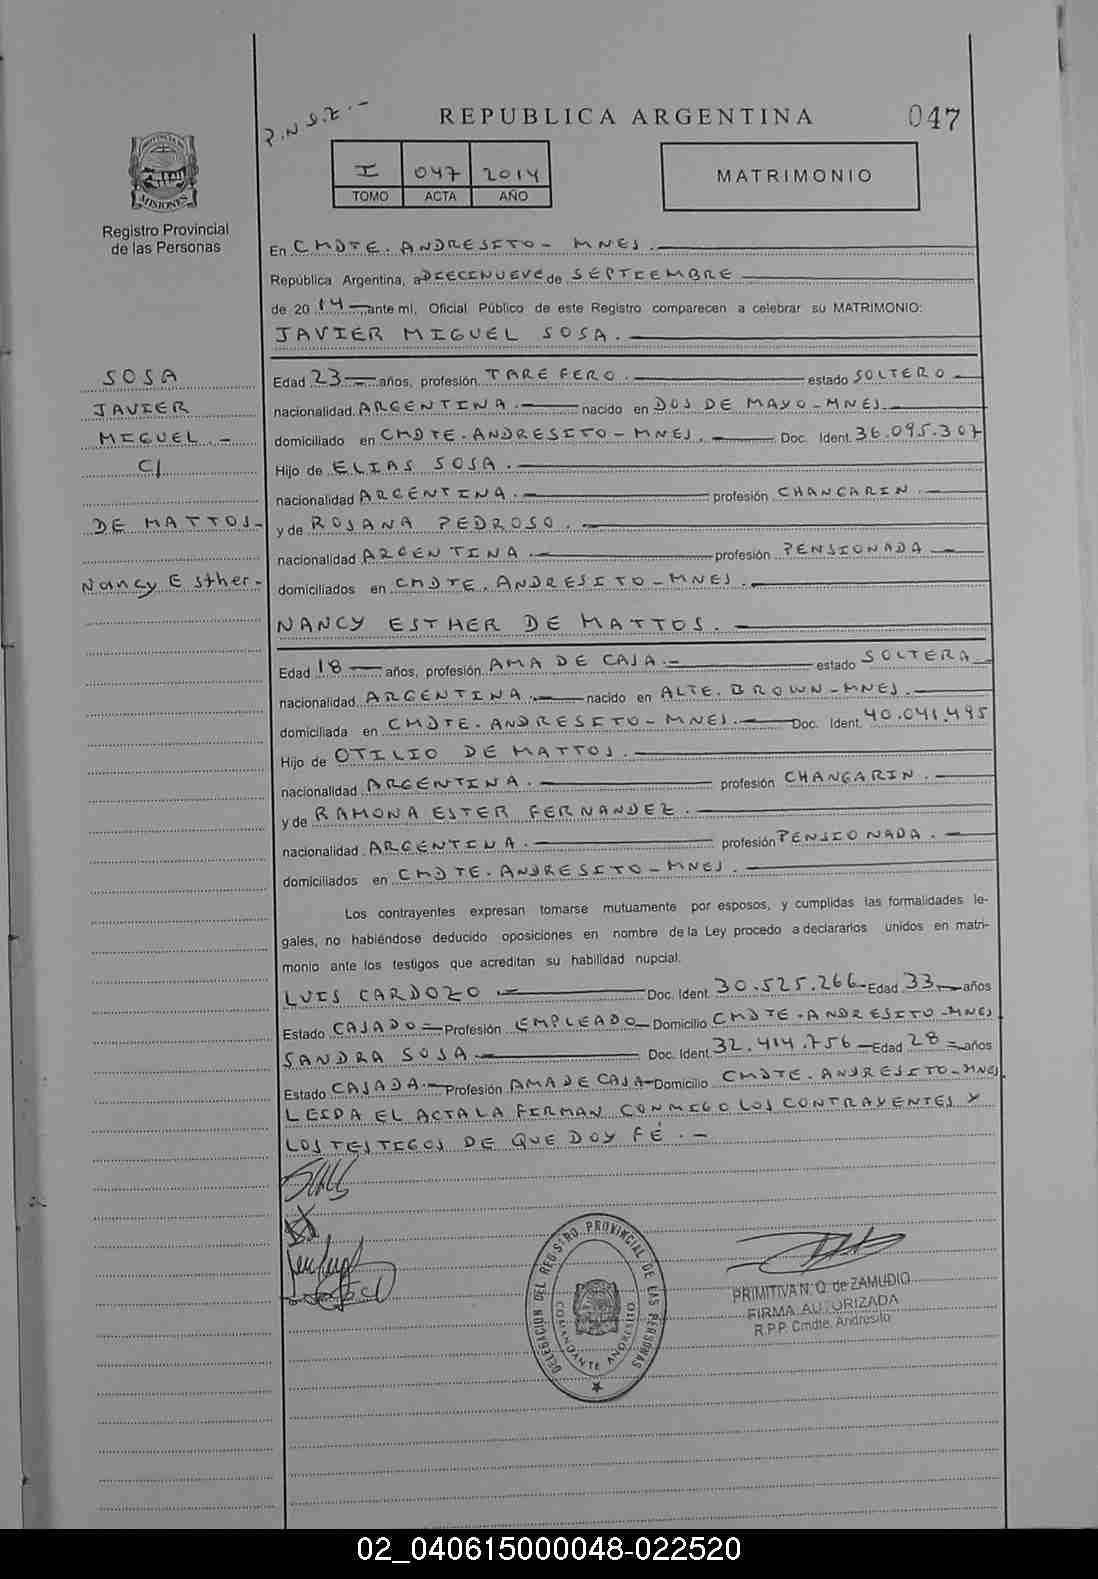 REPUBLICA ARGENTINA
047
I 047 2014
TOMO ACTA AÑO
MATRIMONIO
MISIONES
Registro Provincial
de las Personas
En CMDTE. ANDRESITO - MNES.
República Argentina, a DIECINUEVE de SEPTIEMBRE
de 2014 ante mi, Oficial Público de este Registro comparecen a celebrar su MATRIMONIO:
JAVIER MIGUEL SOSA.
SOSA
JAVIER
MIGUEL.-
C/
DE MATTOS-
Nancy Esther.
Edad 23 años, profesión TAREFERO. estado SOLTERO
nacionalidad ARGENTINA. nacido en DOS DE MAYO-MNES.
domiciliado en CMDTE. ANDRESITO-MNES. Doc. Ident. 36.095.307
Hijo de ELIAS SOSA.
nacionalidad ARGENTINA. profesión CHANGARIN.
y de ROSANA PEDROSO.
nacionalidad ARGENTINA. profesión PENSIONADA
domiciliados en CMDTE. ANDRESITO-MNES.
NANCY ESTHER DE MATTOS.
Edad 18 años, profesión AMA DE CASA.- estado SOLTERA
nacionalidad ARGENTINA. nacido en ALTE. BROWN-MNES.
domiciliada en CMDTE. ANDRESITO-MNES. Doc. Ident. 40.041.495
Hijo de OTILIO DE MATTOS.
nacionalidad ARGENTINA. profesión CHANGARIN.
y de RAMONA ESTER FERNANDEZ.
nacionalidad ARGENTINA. profesión PENSIONADA.
domiciliados en CMDTE. ANDRESITO-MNES.
Los contrayentes expresan tomarse mutuamente por esposos, y cumplidas las formalidades le-
gales, no habiéndose deducido oposiciones en nombre de la Ley procedo a declararlos unidos en matri-
monio ante los testigos que acreditan su habilidad nupcial.
LUIS CARDOZO Doc. Ident. 30.525.266 Edad 33 años
Estado CASADO Profesión EMPLEADO Domicilio CMDTE. ANDRESITO-MNES
SANDRA SOSA Doc. Ident. 32.414.756 Edad 28 años
Estado CASADA Profesión AMA DE CASA Domicilio CMDTE. ANDRESITO-MNES
LEIDA EL ACTA LA FIRMAN CONMIGO LOS CONTRAYENTES Y
LOS TESTIGOS DE QUE DOY FÉ.-
DELEGACION DEL REGISTRO PROVINCIAL DE LAS PERSONAS
COMANDANTE ANDRESITO
PRIMITIVA N. O. de ZAMUDIO
FIRMA AUTORIZADA
R.P.P. Cmdte. Andresito
02_040615000048-022520